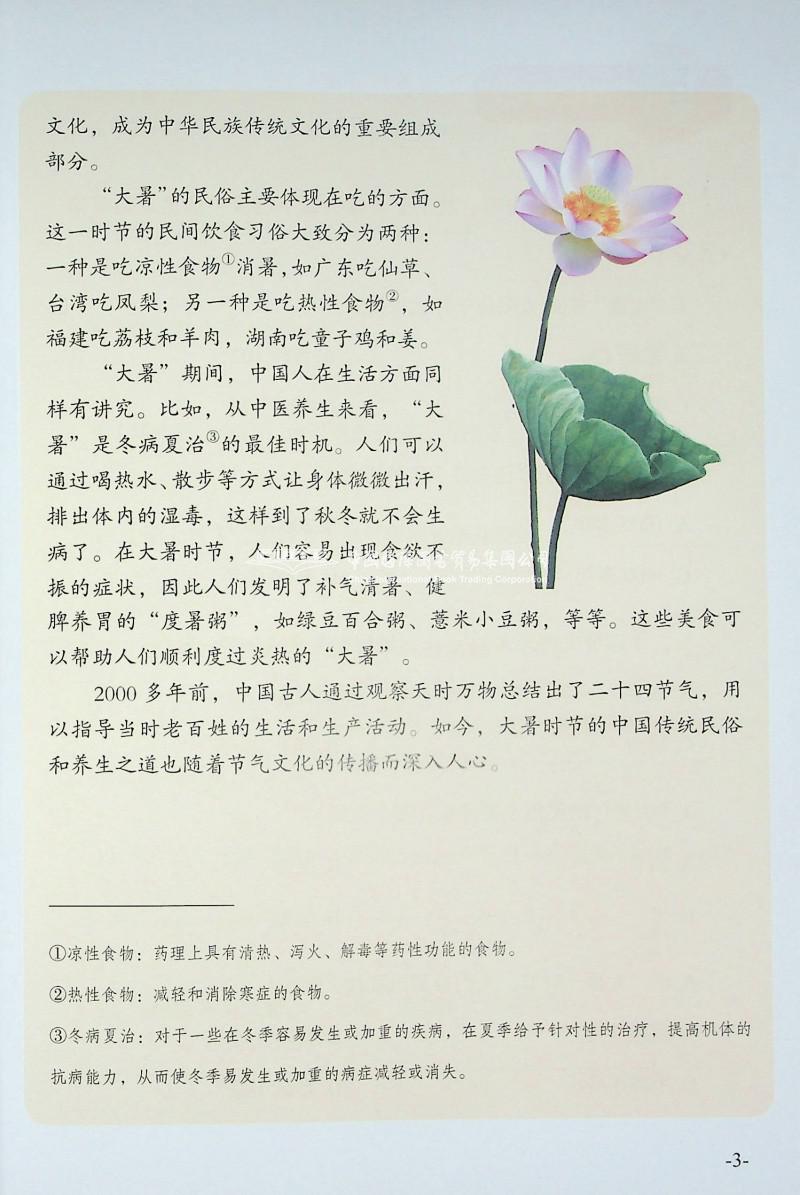 文化，成为中华民族传统文化的重要组成
部分。
“大暑”的民俗主要体现在吃的方面。
这一时节的民间饮食习俗大致分为两种：
一种是吃凉性食物①消暑，如广东吃仙草、
台湾吃凤梨；另一种是吃热性食物②，如
福建吃荔枝和羊肉，湖南吃童子鸡和姜。
“大暑”期间，中国人在生活方面同
样有讲究。比如，从中医养生来看，“大
暑”是冬病夏治③的最佳时机。人们可以
通过喝热水、散步等方式让身体微微出汗，
排出体内的湿毒，这样到了秋冬就不会生
病了。在大暑时节，人们容易出现食欲不
振的症状，因此人们发明了补气清暑、健
脾养胃的“度暑粥”，如绿豆百合粥、薏米小豆粥，等等。这些美食可
以帮助人们顺利度过炎热的“大暑”。
2000 多年前，中国古人通过观察天时万物总结出了二十四节气，用
以指导当时老百姓的生活和生产活动。如今，大暑时节的中国传统民俗
和养生之道也随着节气文化的传播而深入人心。
①凉性食物：药理上具有清热、泻火、解毒等药性功能的食物。
②热性食物：减轻和消除寒症的食物。
③冬病夏治：对于一些在冬季容易发生或加重的疾病，在夏季给予针对性的治疗，提高机体的
抗病能力，从而使冬季易发生或加重的病症减轻或消失。
-3-